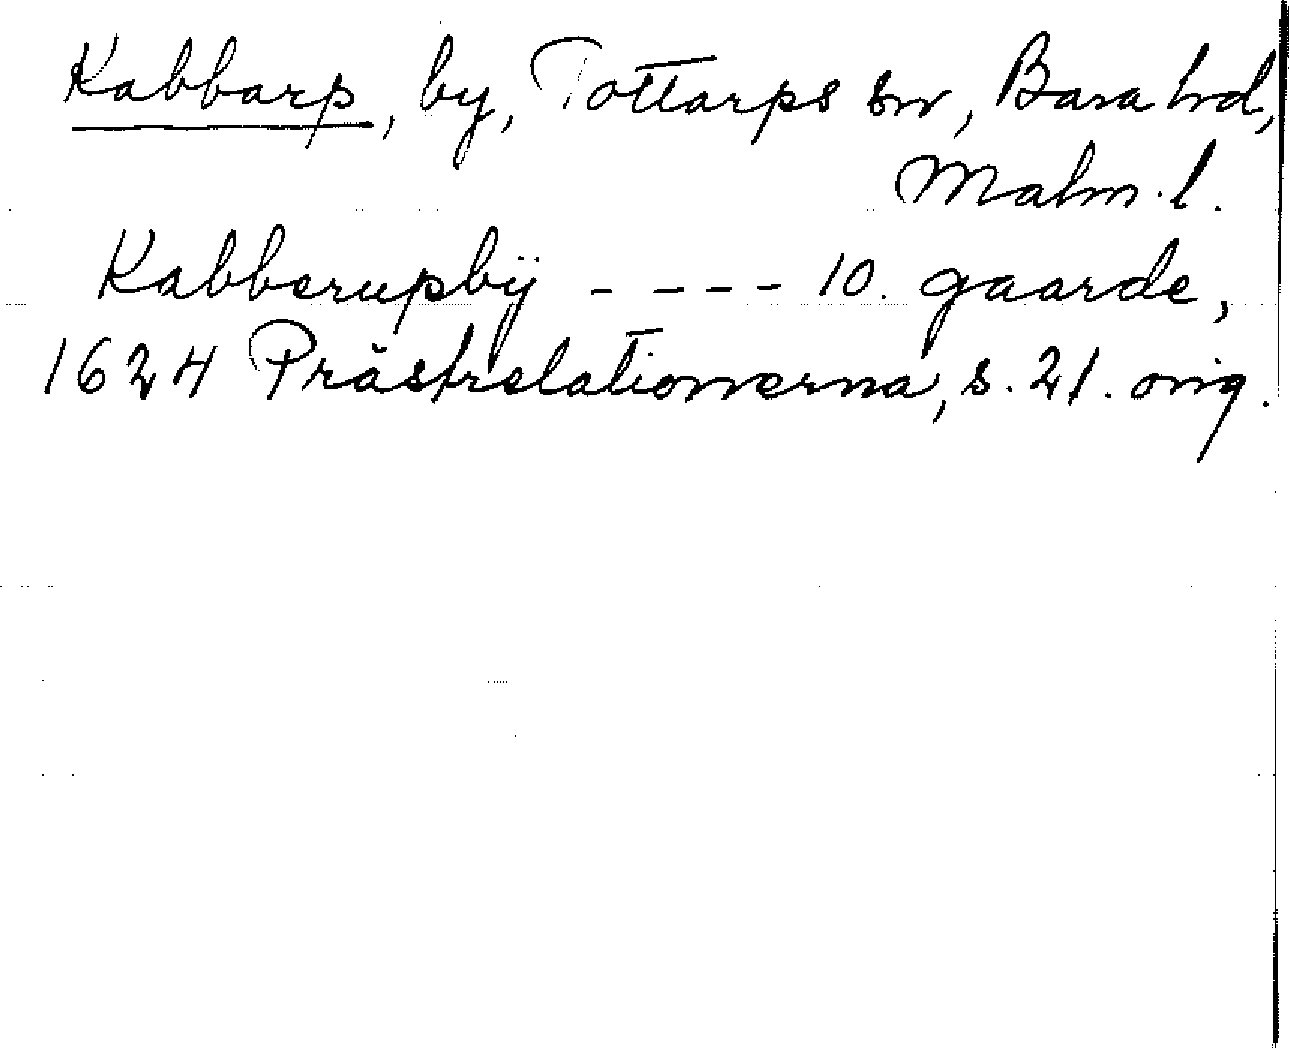 Kabbarp, by, Tottarps sn, Bara hd,
Malm. l.
Kabberupbÿ - - - - 10. gaarde,
1624 Prästrelationerna, s. 21. orig.